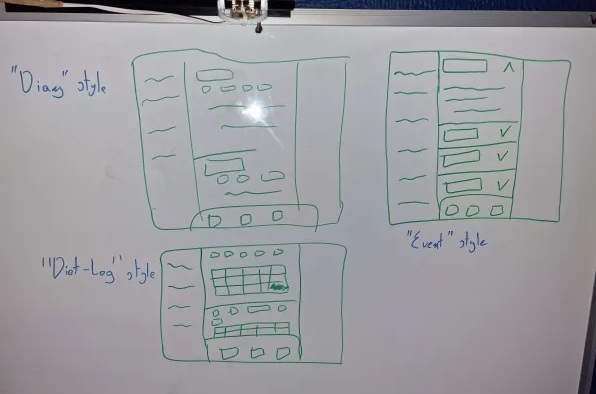 "Diary" style
"Event" style
"Diet-Log" style